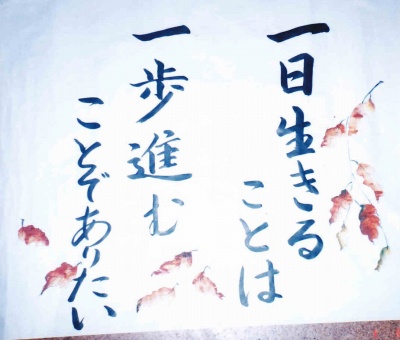 一日生きる
ことは
一歩進む
ことでありたい